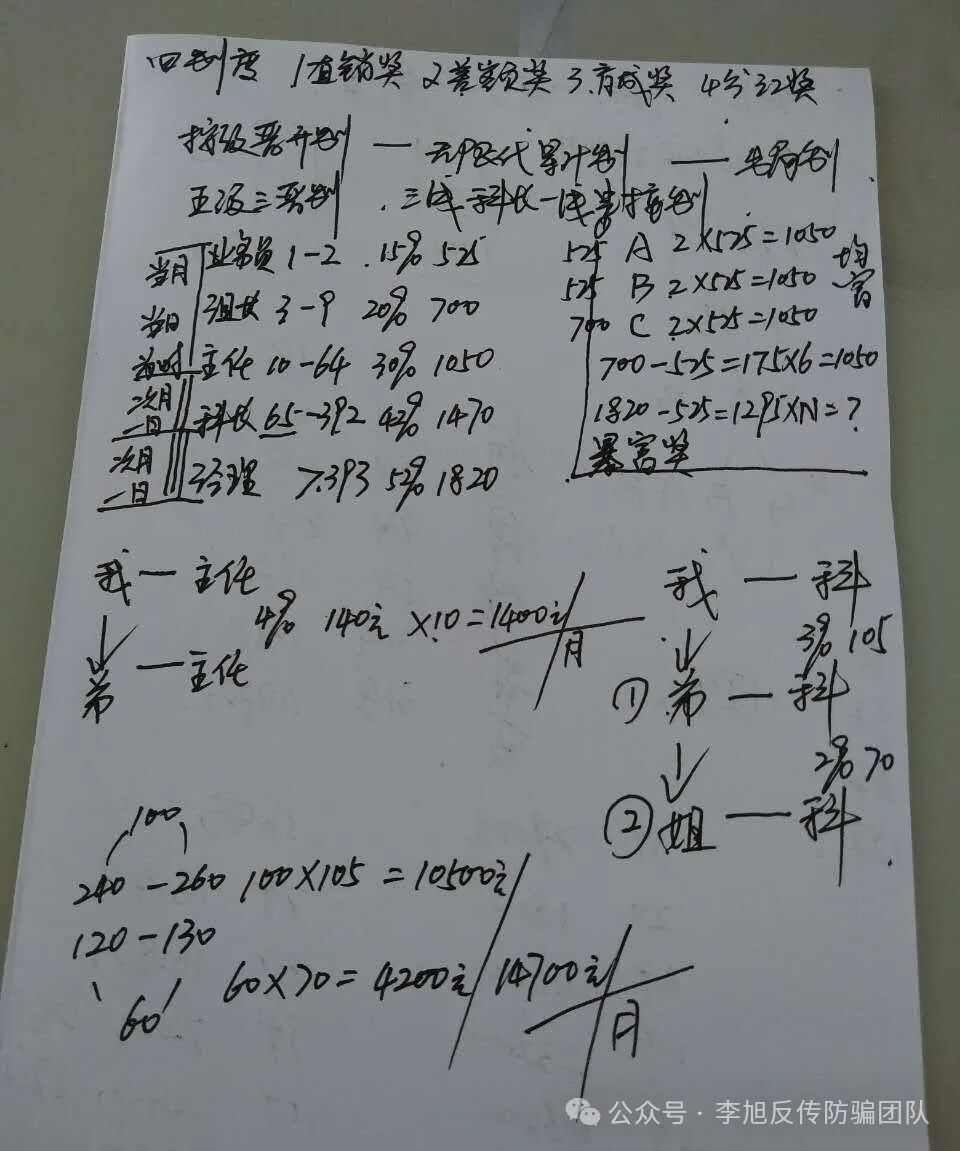 四制度 1直销奖 2差额奖 3.育成奖 4分红奖
按级晋升制 — 无限代累计制 — 出局制
五级三晋制 . 三代科长一代
当月 业务员 1-2 .15% 525
当日 组长 3-9 20% 700
当时 主任 10-64 30% 1050
次月一日 科长 65-392 42% 1470
次月一日 经理 >.393 52% 1820
525 A 2×525=1050 均富
525 B 2×525=1050
700 C 2×525=1050
700-525=175×6=1050
1820-525=1295×N=?
暴富奖
我 — 主任
↓ 4% 140元 ×10=1400元/月
弟 — 主任
我 — 科
↓ 3% 105
① 弟 — 科
↓ 2% 70
② 姐 — 科
100
240-260 100×105=10500元
120-130
60×70=4200元/14700元/月
60
公众号·李旭反传防骗团队